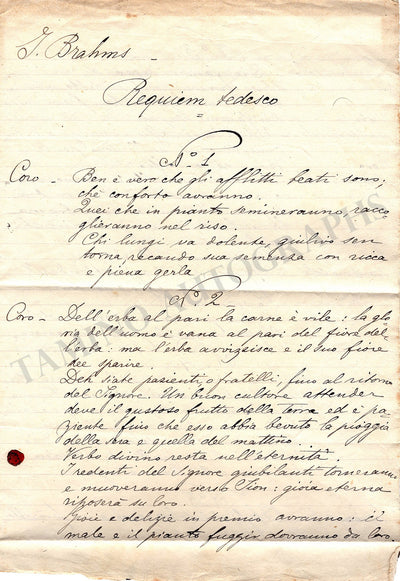 J. Brahms -
Requiem tedesco
N.° 1
Coro - Ben è vero che gli afflitti beati sono:
chè conforto avranno.
Quei che in pianto semineranno, racco
glieranno nel riso.
Chi lungi va dolente, giulivo sen
torna, recando sua semenza con ricca
e piena gerla
N.° 2
Coro - Dell'erba al pari la carne è vile: la glo
ria dell'uomo è vana al pari del fiore del
l'erba: ma l'erba avvizzisce e il suo fiore
dee sparire.
Deh siate pazienti o fratelli, fino al ritorno
del Signore. Un buon cultore attender
deve il gustoso frutto della terra ed è pa
ziente fino che esso abbia bevuto la pioggia
della sera e quella del mattino.
Verbo divino resta nell'eternità.
I redenti del Signore giubilanti torneranno
e muoveranno verso Sion: gioia eterna
riposerà su loro.
Gioie e delizie in premio avranno: il
male e il pianto fuggir dovranno da loro.
TAMINO AUTOGRAPHS